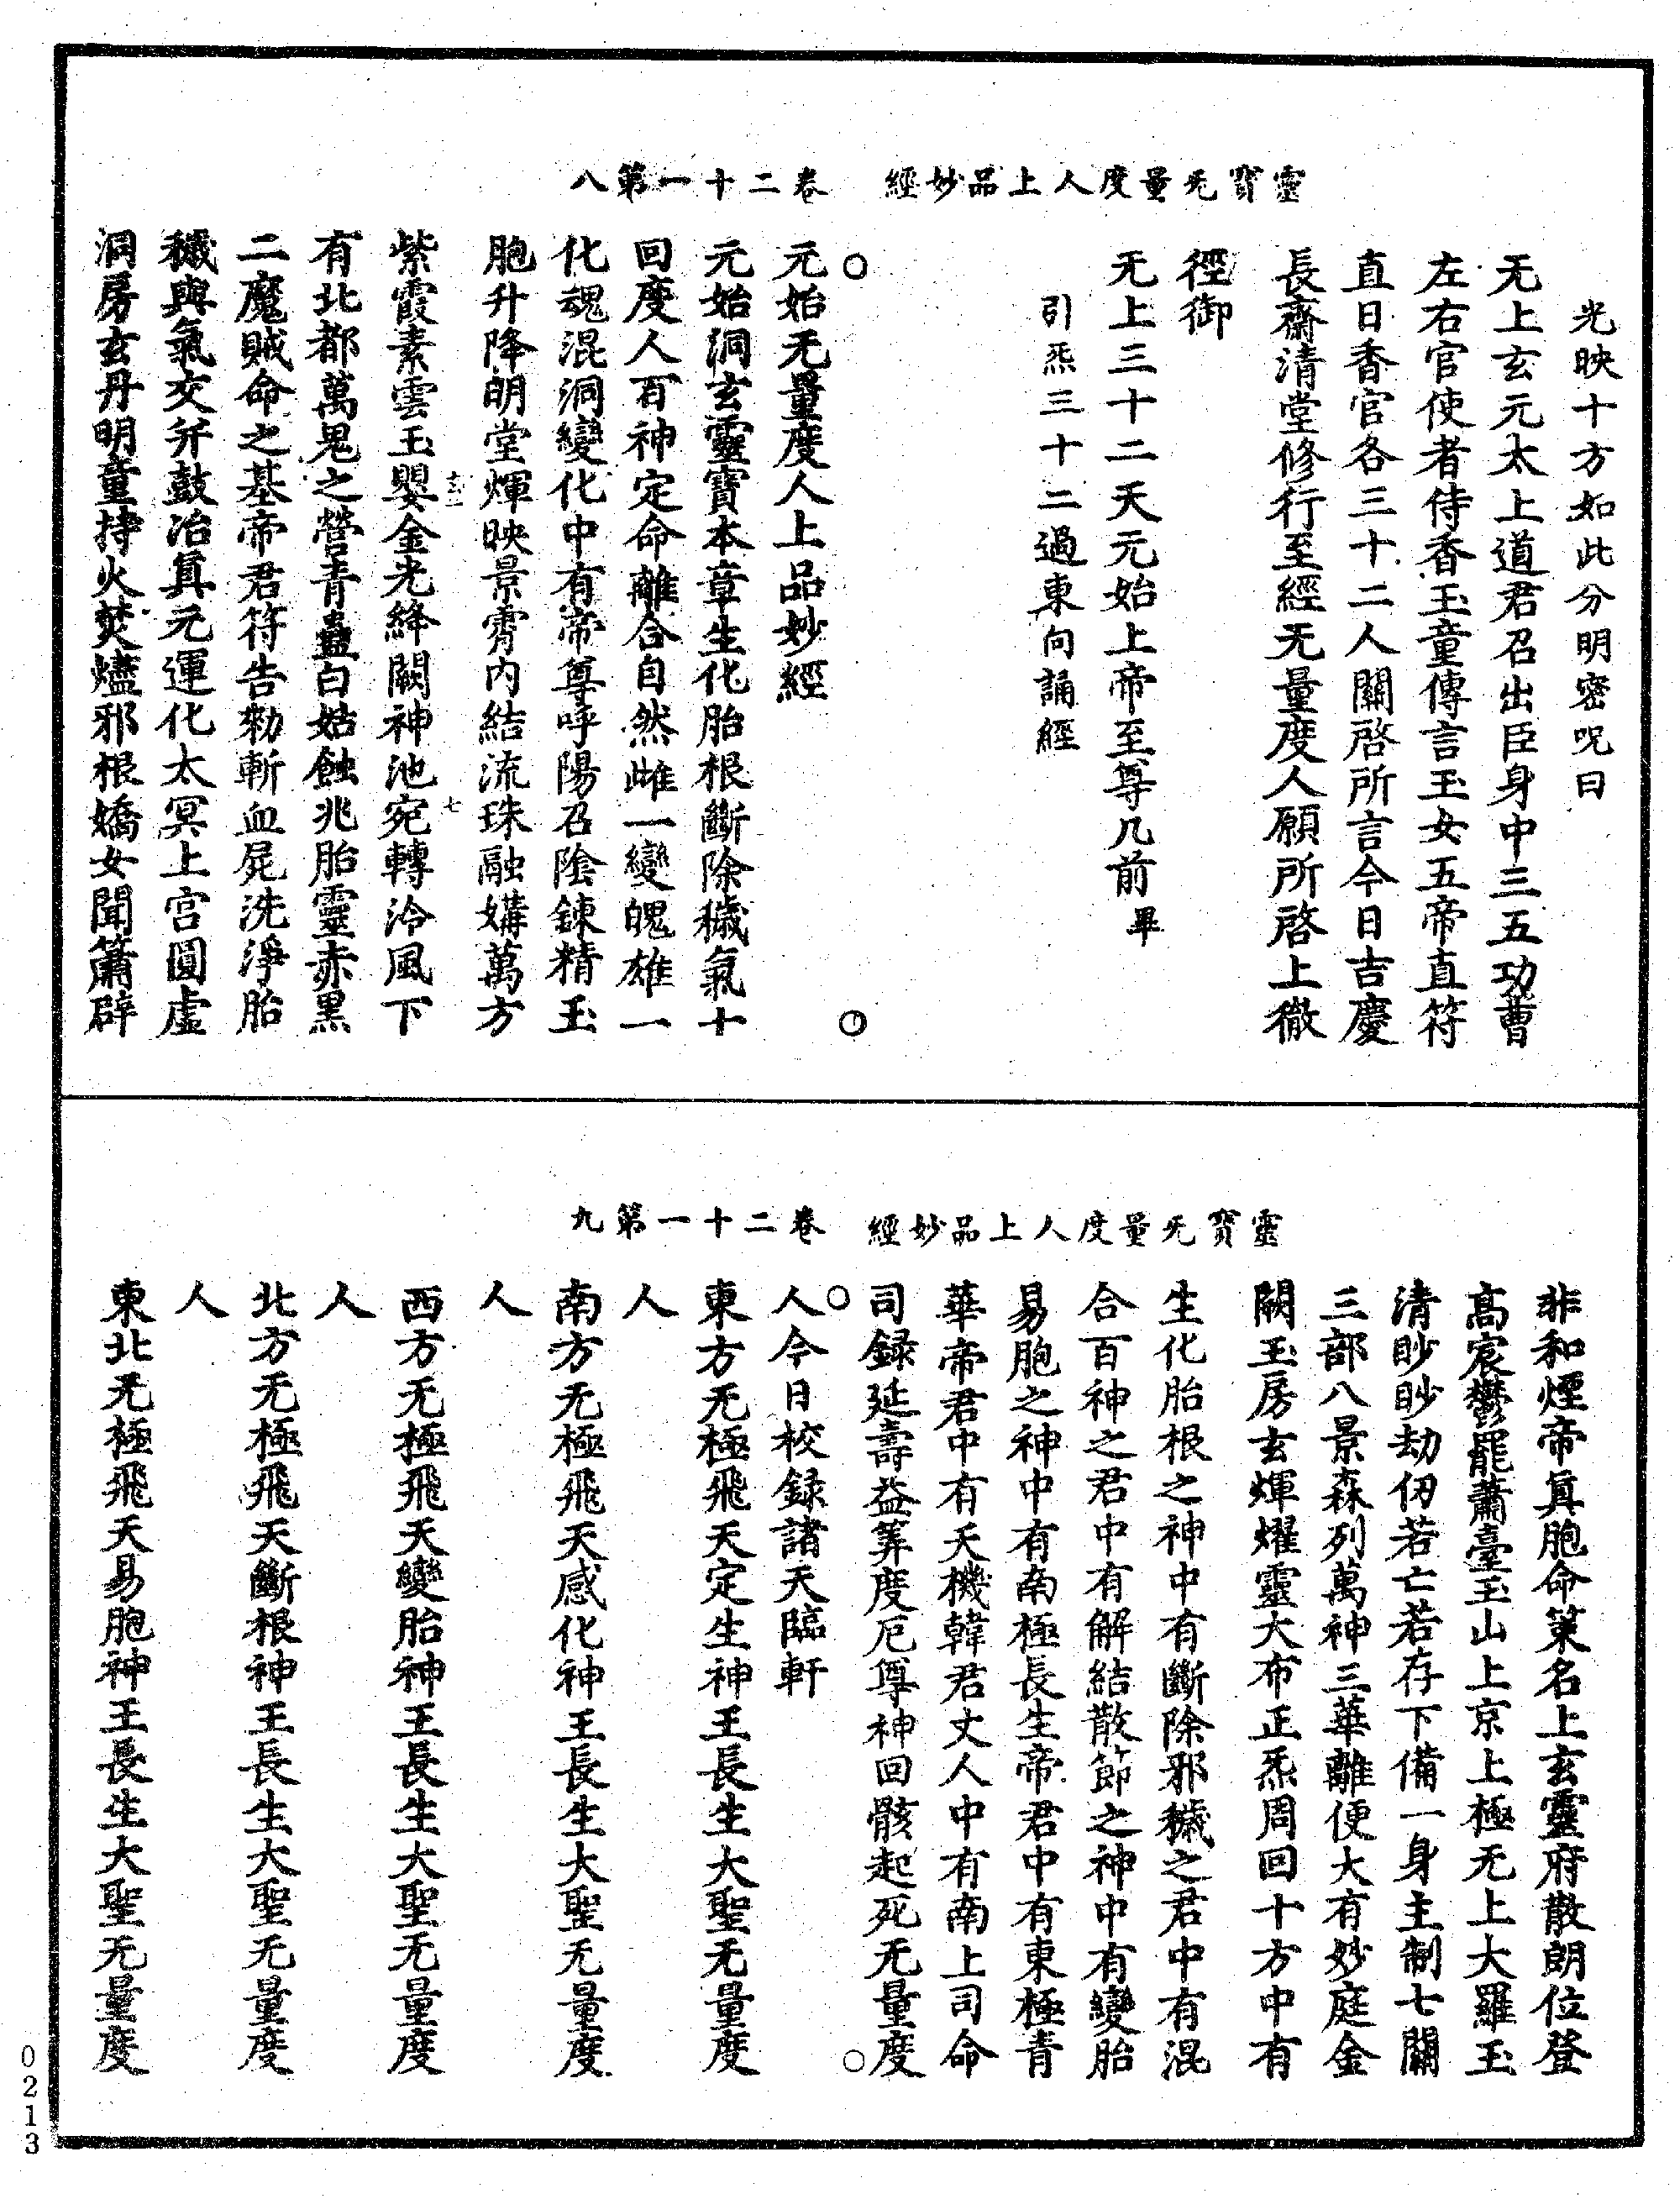 靈寶无量度人上品妙經　卷二十一第八
光映十方如此分明密呪曰
无上玄元太上道君召出臣身中三五功曹
左右官使者侍香玉童傳言玉女五帝直符
直日香官各三十二人關啓所言今日吉慶
長齋清堂修行至經无量度人願所啓上徹
徑御
无上三十二天元始上帝至尊几前畢
引炁三十二過東向誦經
元始无量度人上品妙經
元始洞玄靈寶本章生化胎根斷除穢氣十
回度人百神定命離合自然雌一變魄雄一
化魂混洞變化中有帝尊呼陽召陰鍊精玉
胞升降朗堂煇映景霄內結流珠融媾萬方
紫霞素雲玉嬰金光絳闕神池宛轉泠風下
有北都萬鬼之營青蠱白姑蝕兆胎靈赤黑
二魔賊命之基帝君符告勑斬血屍洗淨胎
穢與氣交并鼓冶真元運化太冥上宮圓虛
洞房玄丹明童持火焚燼邪根嬌女聞簫辟
靈寶无量度人上品妙經　卷二十一第九
非和煙帝真胞命策名上玄靈府散朗位登
高宸鬱羅蕭臺玉山上京上極无上大羅玉
清眇眇劫仞若亡若存下備一身主制七關
三部八景森列萬神三華離便大有妙庭金
闕玉房玄煇燿靈大布正炁周回十方中有
生化胎根之神中有斷除邪穢之君中有混
合百神之君中有解結散節之神中有變胎
易胞之神中有南極長生帝君中有東極青
華帝君中有天機韓君丈人中有南上司命
司録延壽益筭度厄尊神回骸起死无量度
人今日校録諸天臨軒
東方无極飛天定生神王長生大聖无量度
人
南方无極飛天感化神王長生大聖无量度
人
西方无極飛天變胎神王長生大聖无量度
人
北方无極飛天斷根神王長生大聖无量度
人
東北无極飛天易胞神王長生大聖无量度
0213